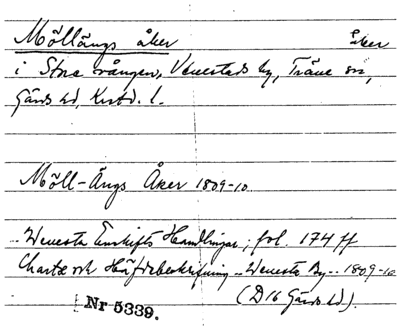 Möllängs åker åker
i Stora vången, Venestads by, Träne sn,
Gärds hd, Krstd. l.
Möll-Ängs Åker 1809-10
Wenesta Enskifts Handlingar, fol. 174 ff
Charta och Häfdebeskrifning .. Wenesta By .. 1809-10
(D16 Gärds hd).
Nr 5339.